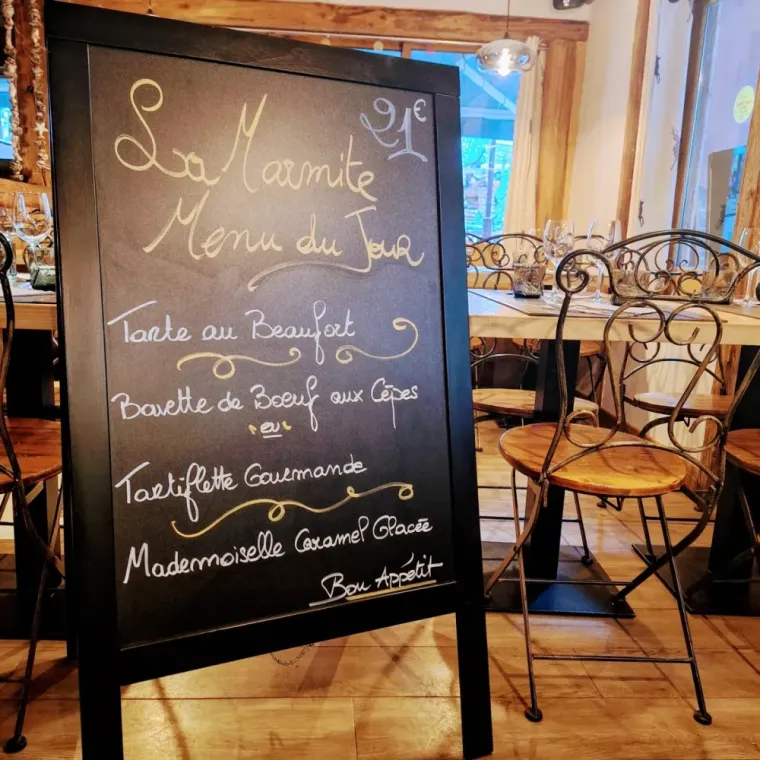 21€
La Marmite
Menu du Jour
Tarte au Beaufort
Bavette de Boeuf aux Cêpes
ou
Tartiflette Gourmande
Mademoiselle Caramel Glacée
Bon Appétit